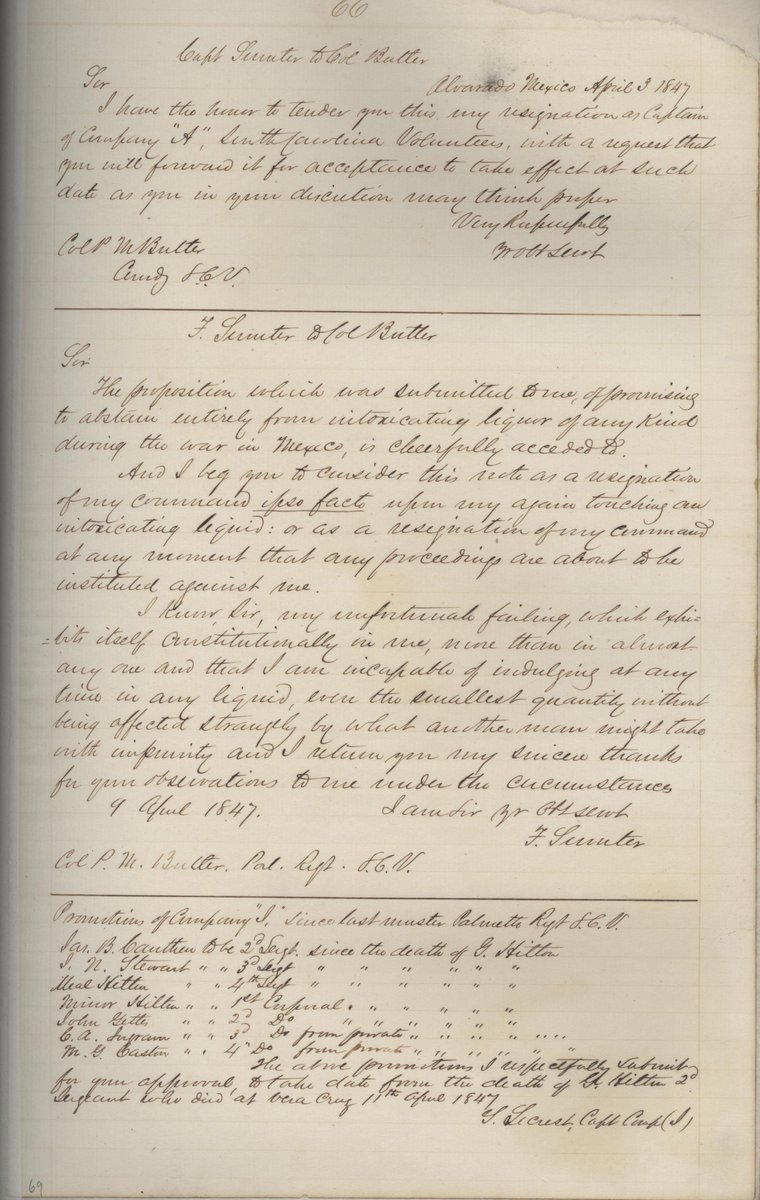 66
Capt Sumter to Col Butler
Sir Alvarado Mexico April 3 1847
I have the honor to tender you this, my resignation as Captain
of Company "A", South Carolina Volunteers, with a request that
you will forward it for acceptance to take effect at such
date as you in your discretion may think proper
Very Respectfully
Col P. M Butler Yr Obt Servt
Comdg S.C.V.
F. Sumter to Col Butler
Sir
The proposition which was submitted to me, of promising
to abstain entirely from intoxicating liquor of any kind
during the war in Mexico, is cheerfully acceded to.
And I beg you to consider this note as a resignation
of my command ipso facto upon my again touching an
intoxicating liquid: or as a resignation of my command
at any moment that any proceedings are about to be
instituted against me.
I know, Sir, my unfortunate failing, which exhi-
=bits itself constitutionally in me, more than in almost
any one and that I am incapable of indulging at any
time in any liquid, even the smallest quantity without
being affected strangely by what another man might take
with impunity and I return you my sincere thanks
for your observations to me under the circumstances
9 April 1847. I am Sir yr obt servt
F. Sumter
Col P. M. Butler. Pal. Regt. S.C.V.
Promotions of Company "I," since last muster Palmetto Regt S.C.V.
Jas. B. Cauthen to be 2d Sergt. since the death of G. Hilton
J. N. Stewart " " 3d Sergt " " " " " "
Neal Hilton " " 4th Sergt " " " " " "
Minor Hilton " " 1st Corporal " " " " " "
John " " 2d Do " " " " " "
C. A. Ingram " " 3d Do from private " " " " "
M. G. Caston " " 4th Do from private " " " " " "
The above promotions I respectfully submit
for your approval, to take date from the death of G. Hilton 2d
Sergeant who died at Vera Cruz 11th April 1847
G. Secrest, Capt Comp (I)
69